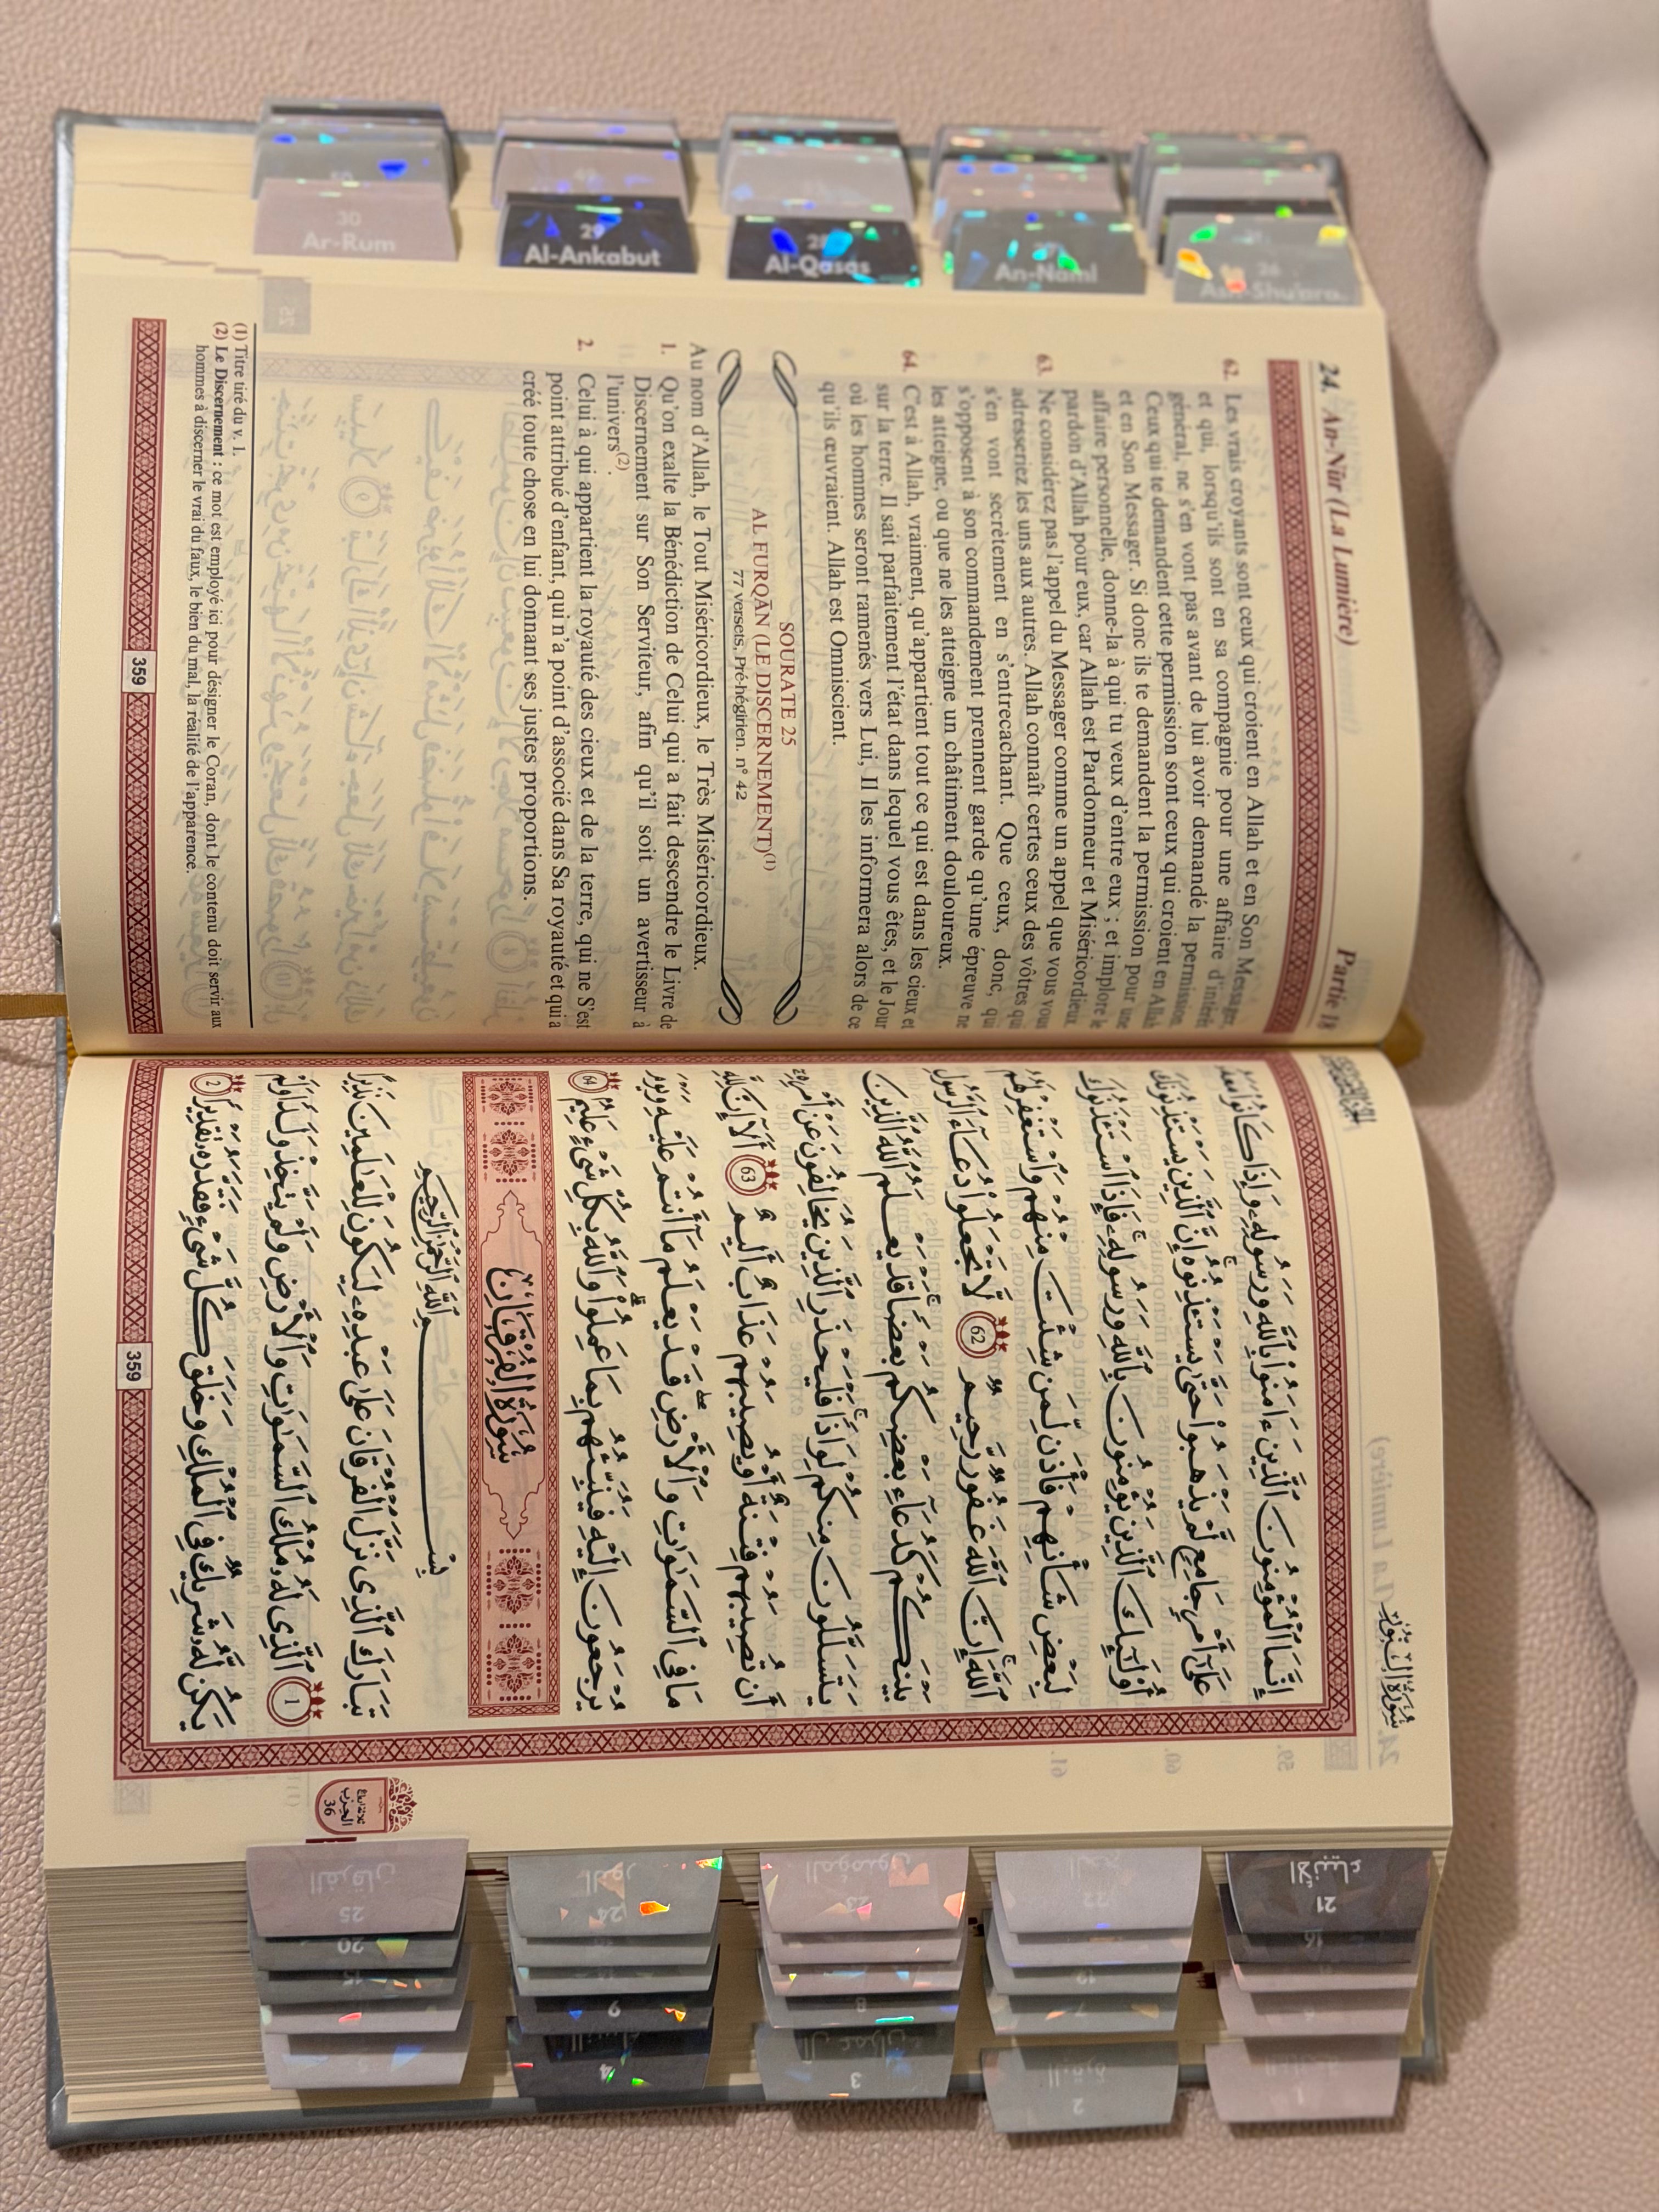 24. An-Nūr (La Lumière) Partie 18
62. Les vrais croyants sont ceux qui croient en Allah et en Son Messager,
et qui, lorsqu'ils sont en sa compagnie pour une affaire d'intérêt
général, ne s'en vont pas avant de lui avoir demandé la permission.
Ceux qui te demandent cette permission sont ceux qui croient en Allah
et en Son Messager. Si donc ils te demandent la permission pour une
affaire personnelle, donne-la à qui tu veux d'entre eux ; et implore le
pardon d'Allah pour eux, car Allah est Pardonneur et Miséricordieux.
63. Ne considérez pas l'appel du Messager comme un appel que vous vous
adresseriez les uns aux autres. Allah connaît certes ceux des vôtres qui
s'en vont secrètement en s'entrecachant. Que ceux, donc, qui
s'opposent à son commandement prennent garde qu'une épreuve ne
les atteigne, ou que ne les atteigne un châtiment douloureux.
64. C'est à Allah, vraiment, qu'appartient tout ce qui est dans les cieux et
sur la terre. Il sait parfaitement l'état dans lequel vous êtes, et le Jour
où les hommes seront ramenés vers Lui, Il les informera alors de ce
qu'ils œuvraient. Allah est Omniscient.
SOURATE 25
AL FURQĀN (LE DISCERNEMENT)(1)
77 versets, Pré-hégirien. n° 42
Au nom d'Allah, le Tout Miséricordieux, le Très Miséricordieux.
1. Qu'on exalte la Bénédiction de Celui qui a fait descendre le Livre de
Discernement sur Son Serviteur, afin qu'il soit un avertisseur à
l'univers(2).
2. Celui à qui appartient la royauté des cieux et de la terre, qui ne S'est
point attribué d'enfant, qui n'a point d'associé dans Sa royauté et qui a
créé toute chose en lui donnant ses justes proportions.
(1) Titre tiré du v. 1.
(2) Le Discernement : ce mot est employé ici pour désigner le Coran, dont le contenu doit servir aux
hommes à discerner le vrai du faux, le bien du mal, la réalité de l'apparence.
359
سُورَةُ النُّورِ
إِنَّمَا ٱلْمُؤْمِنُونَ ٱلَّذِينَ ءَامَنُوا۟ بِٱللَّهِ وَرَسُولِهِۦ وَإِذَا كَانُوا۟ مَعَهُۥ
عَلَىٰٓ أَمْرٍ جَامِعٍ لَّمْ يَذْهَبُوا۟ حَتَّىٰ يَسْتَـْٔذِنُوهُ ۚ إِنَّ ٱلَّذِينَ يَسْتَـْٔذِنُونَكَ
أُو۟لَـٰٓئِكَ ٱلَّذِينَ يُؤْمِنُونَ بِٱللَّهِ وَرَسُولِهِۦ ۚ فَإِذَا ٱسْتَـْٔذَنُوكَ
لِبَعْضِ شَأْنِهِمْ فَأْذَن لِّمَن شِئْتَ مِنْهُمْ وَٱسْتَغْفِرْ لَهُمُ
ٱللَّهَ ۚ إِنَّ ٱللَّهَ غَفُورٌ رَّحِيمٌ 62 لَّا تَجْعَلُوا۟ دُعَآءَ ٱلرَّسُولِ
بَيْنَكُمْ كَدُعَآءِ بَعْضِكُم بَعْضًا ۚ قَدْ يَعْلَمُ ٱللَّهُ ٱلَّذِينَ
يَتَسَلَّلُونَ مِنكُمْ لِوَاذًا ۚ فَلْيَحْذَرِ ٱلَّذِينَ يُخَالِفُونَ عَنْ أَمْرِهِۦٓ
أَن تُصِيبَهُمْ فِتْنَةٌ أَوْ يُصِيبَهُمْ عَذَابٌ أَلِيمٌ 63 أَلَآ إِنَّ لِلَّهِ
مَا فِى ٱلسَّمَـٰوَٰتِ وَٱلْأَرْضِ ۖ قَدْ يَعْلَمُ مَآ أَنتُمْ عَلَيْهِ وَيَوْمَ
يُرْجَعُونَ إِلَيْهِ فَيُنَبِّئُهُم بِمَا عَمِلُوا۟ ۗ وَٱللَّهُ بِكُلِّ شَىْءٍ عَلِيمٌ 64
سُورَةُ الْفُرْقَانِ
بِسْمِ ٱللَّهِ ٱلرَّحْمَـٰنِ ٱلرَّحِيمِ
تَبَارَكَ ٱلَّذِى نَزَّلَ ٱلْفُرْقَانَ عَلَىٰ عَبْدِهِۦ لِيَكُونَ لِلْعَـٰلَمِينَ نَذِيرًا
1 ٱلَّذِى لَهُۥ مُلْكُ ٱلسَّمَـٰوَٰتِ وَٱلْأَرْضِ وَلَمْ يَتَّخِذْ وَلَدًا وَلَمْ
يَكُن لَّهُۥ شَرِيكٌ فِى ٱلْمُلْكِ وَخَلَقَ كُلَّ شَىْءٍ فَقَدَّرَهُۥ تَقْدِيرًا 2
359
ثلاثة أرباع
الحزب
36
26
Ash-Shu'ara
27
An-Naml
28
Al-Qasas
29
Al-Ankabut
30
Ar-Rum
الأنبياء
21
23
النور
24
الفرقان
25
20
9
8
7
4
آل عمران
3
البقرة
2
1